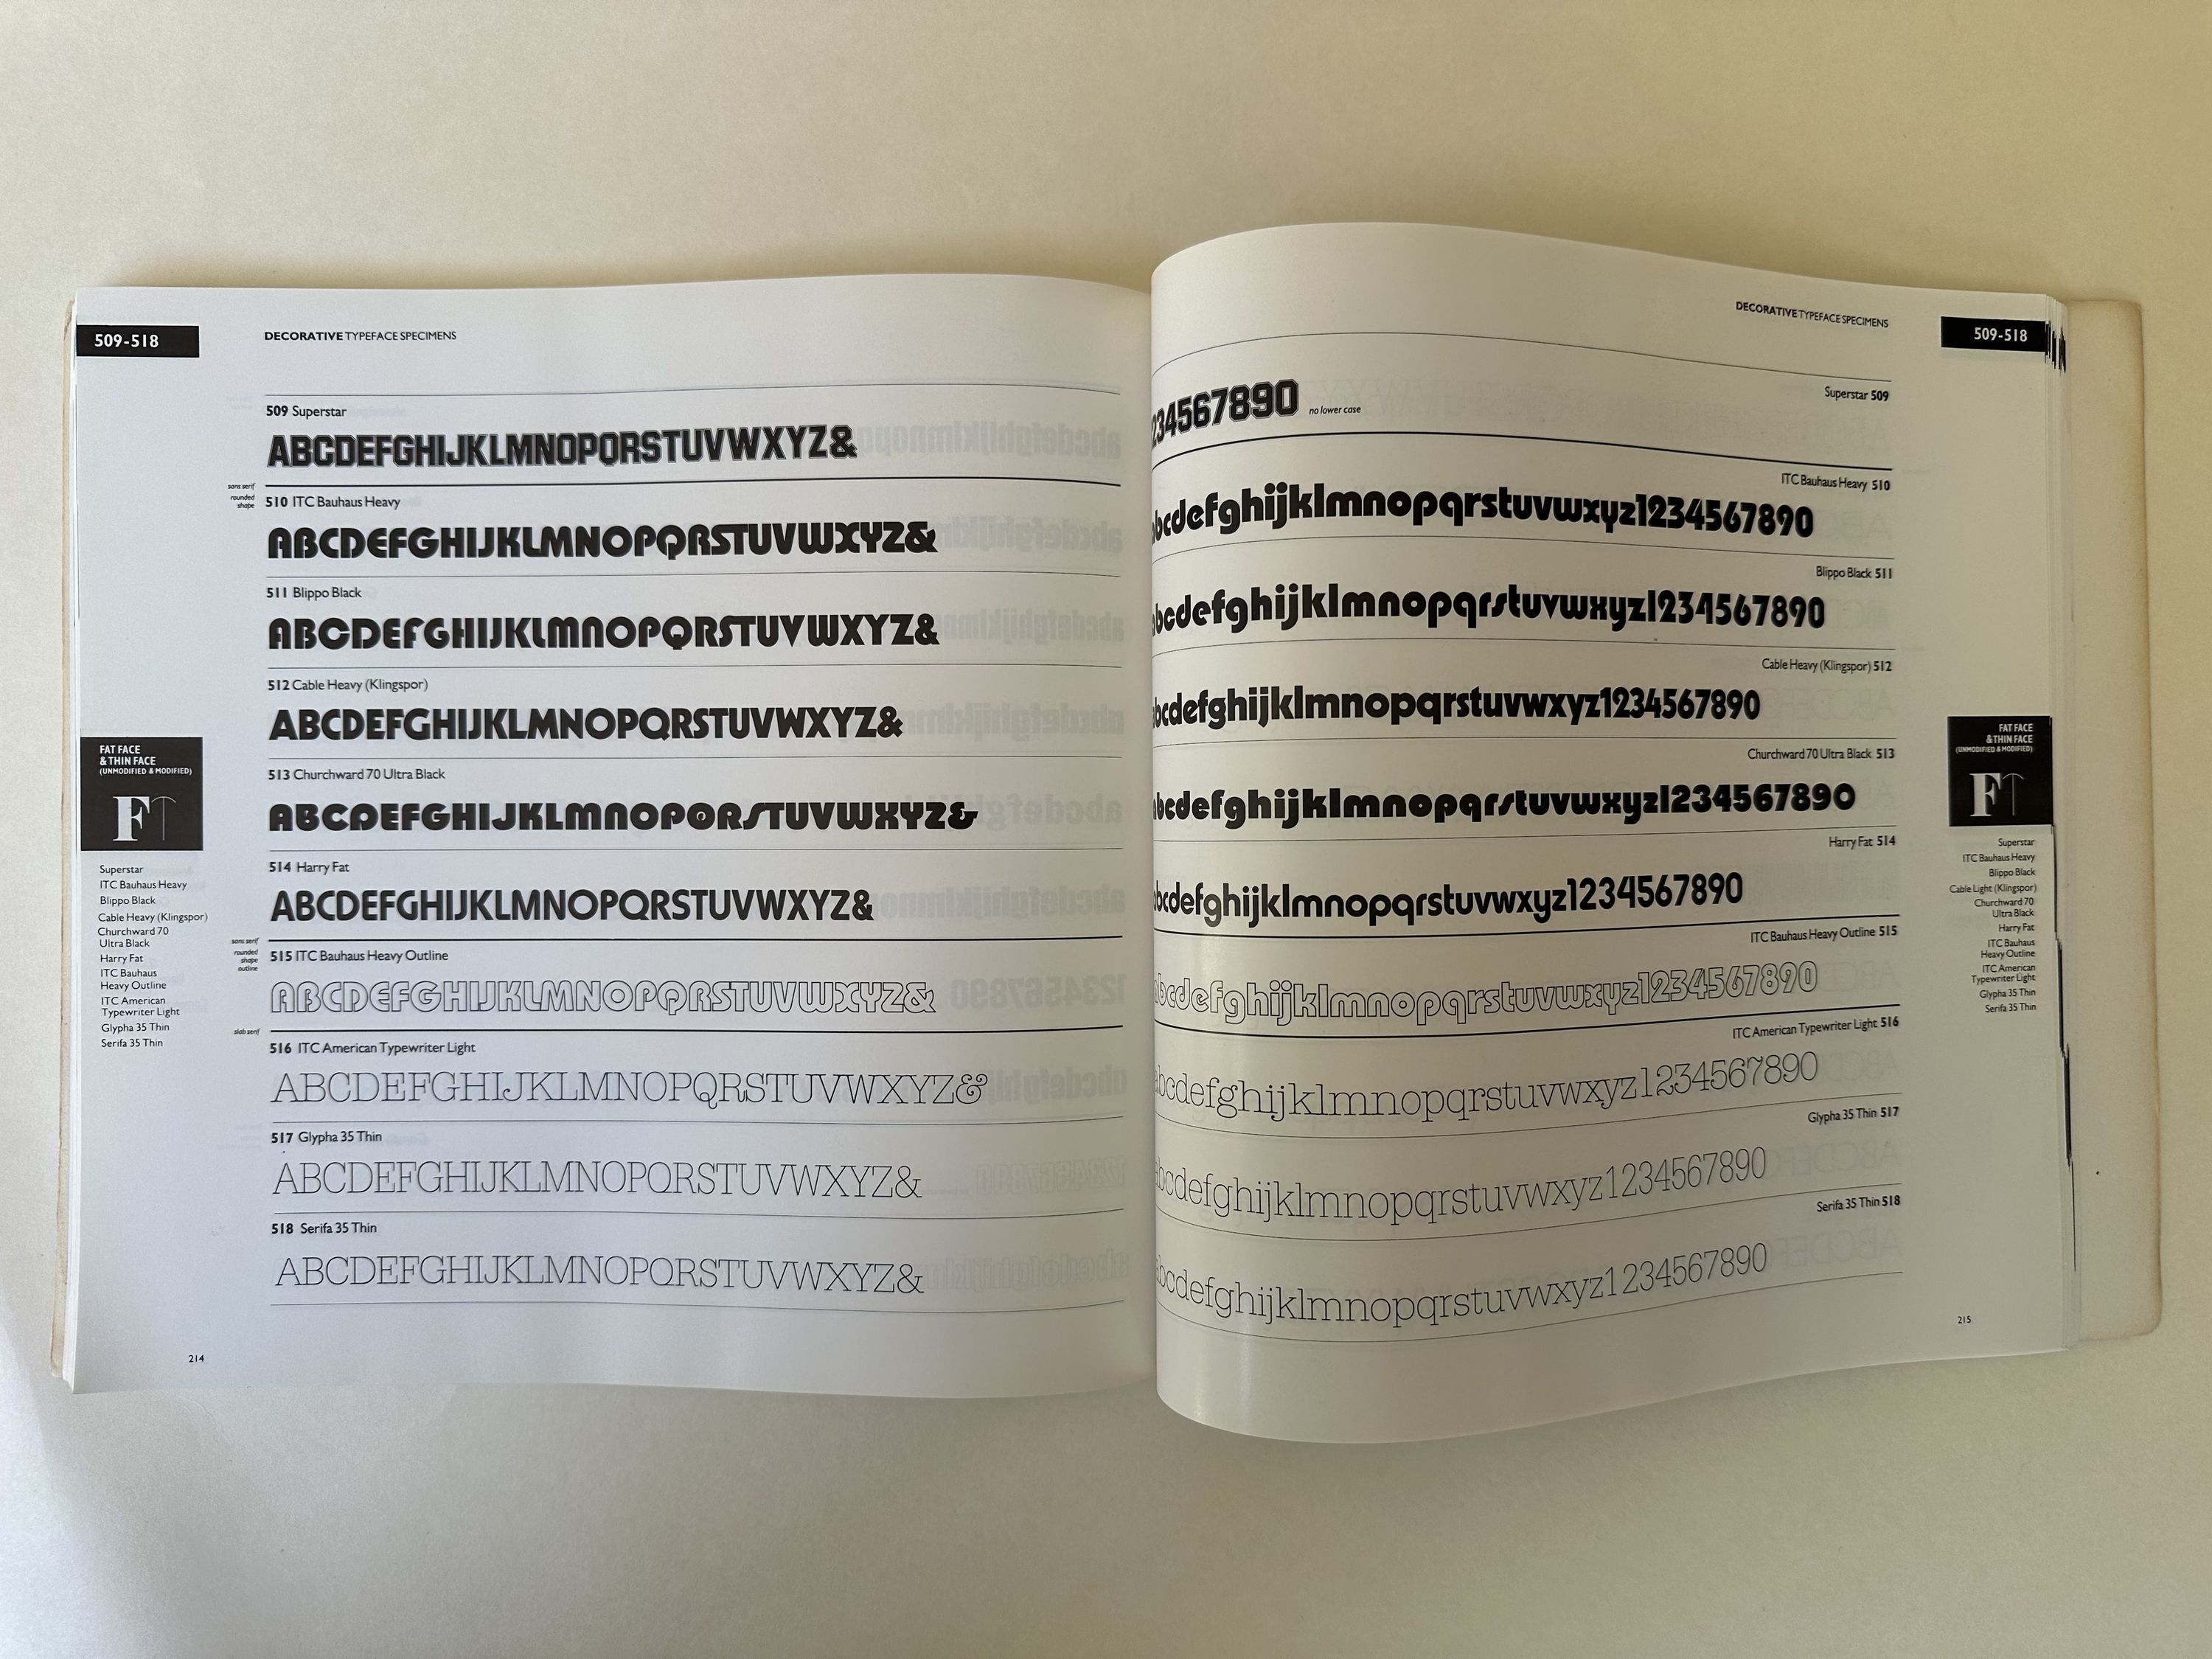 509-518
DECORATIVE TYPEFACE SPECIMENS
509 Superstar
ABCDEFGHIJKLMNOPQRSTUVWXYZ&
sans serif
rounded
shape
510 ITC Bauhaus Heavy
ABCDEFGHIJKLMNOPQRSTUVWXYZ&
511 Blippo Black
ABCDEFGHIJKLMNOPQRSTUVWXYZ&
512 Cable Heavy (Klingspor)
ABCDEFGHIJKLMNOPQRSTUVWXYZ&
513 Churchward 70 Ultra Black
ABCDEFGHIJKLMNOPQRSTUVWXYZ&
514 Harry Fat
ABCDEFGHIJKLMNOPQRSTUVWXYZ&
sans serif
rounded
shape
outline
515 ITC Bauhaus Heavy Outline
ABCDEFGHIJKLMNOPQRSTUVWXYZ&
slab serif
516 ITC American Typewriter Light
ABCDEFGHIJKLMNOPQRSTUVWXYZ&
517 Glypha 35 Thin
ABCDEFGHIJKLMNOPQRSTUVWXYZ&
518 Serifa 35 Thin
ABCDEFGHIJKLMNOPQRSTUVWXYZ&
FAT FACE
& THIN FACE
(UNMODIFIED & MODIFIED)
FT
Superstar
ITC Bauhaus Heavy
Blippo Black
Cable Heavy (Klingspor)
Churchward 70
Ultra Black
Harry Fat
ITC Bauhaus
Heavy Outline
ITC American
Typewriter Light
Glypha 35 Thin
Serifa 35 Thin
214
DECORATIVE TYPEFACE SPECIMENS
509-518
Superstar 509
234567890 no lower case
ITC Bauhaus Heavy 510
bcdefghijklmnopqrstuvwxyz1234567890
Blippo Black 511
bcdefghijklmnopqrstuvwxyz1234567890
Cable Heavy (Klingspor) 512
bcdefghijklmnopqrstuvwxyz1234567890
Churchward 70 Ultra Black 513
bcdefghijklmnopqrstuvwxyz1234567890
Harry Fat 514
bcdefghijklmnopqrstuvwxyz1234567890
ITC Bauhaus Heavy Outline 515
bcdefghijklmnopqrstuvwxyz1234567890
ITC American Typewriter Light 516
bcdefghijklmnopqrstuvwxyz1234567890
Glypha 35 Thin 517
bcdefghijklmnopqrstuvwxyz1234567890
Serifa 35 Thin 518
bcdefghijklmnopqrstuvwxyz1234567890
FAT FACE
& THIN FACE
(UNMODIFIED & MODIFIED)
FT
Superstar
ITC Bauhaus Heavy
Blippo Black
Cable Light (Klingspor)
Churchward 70
Ultra Black
Harry Fat
ITC Bauhaus
Heavy Outline
ITC American
Typewriter Light
Glypha 35 Thin
Serifa 35 Thin
215